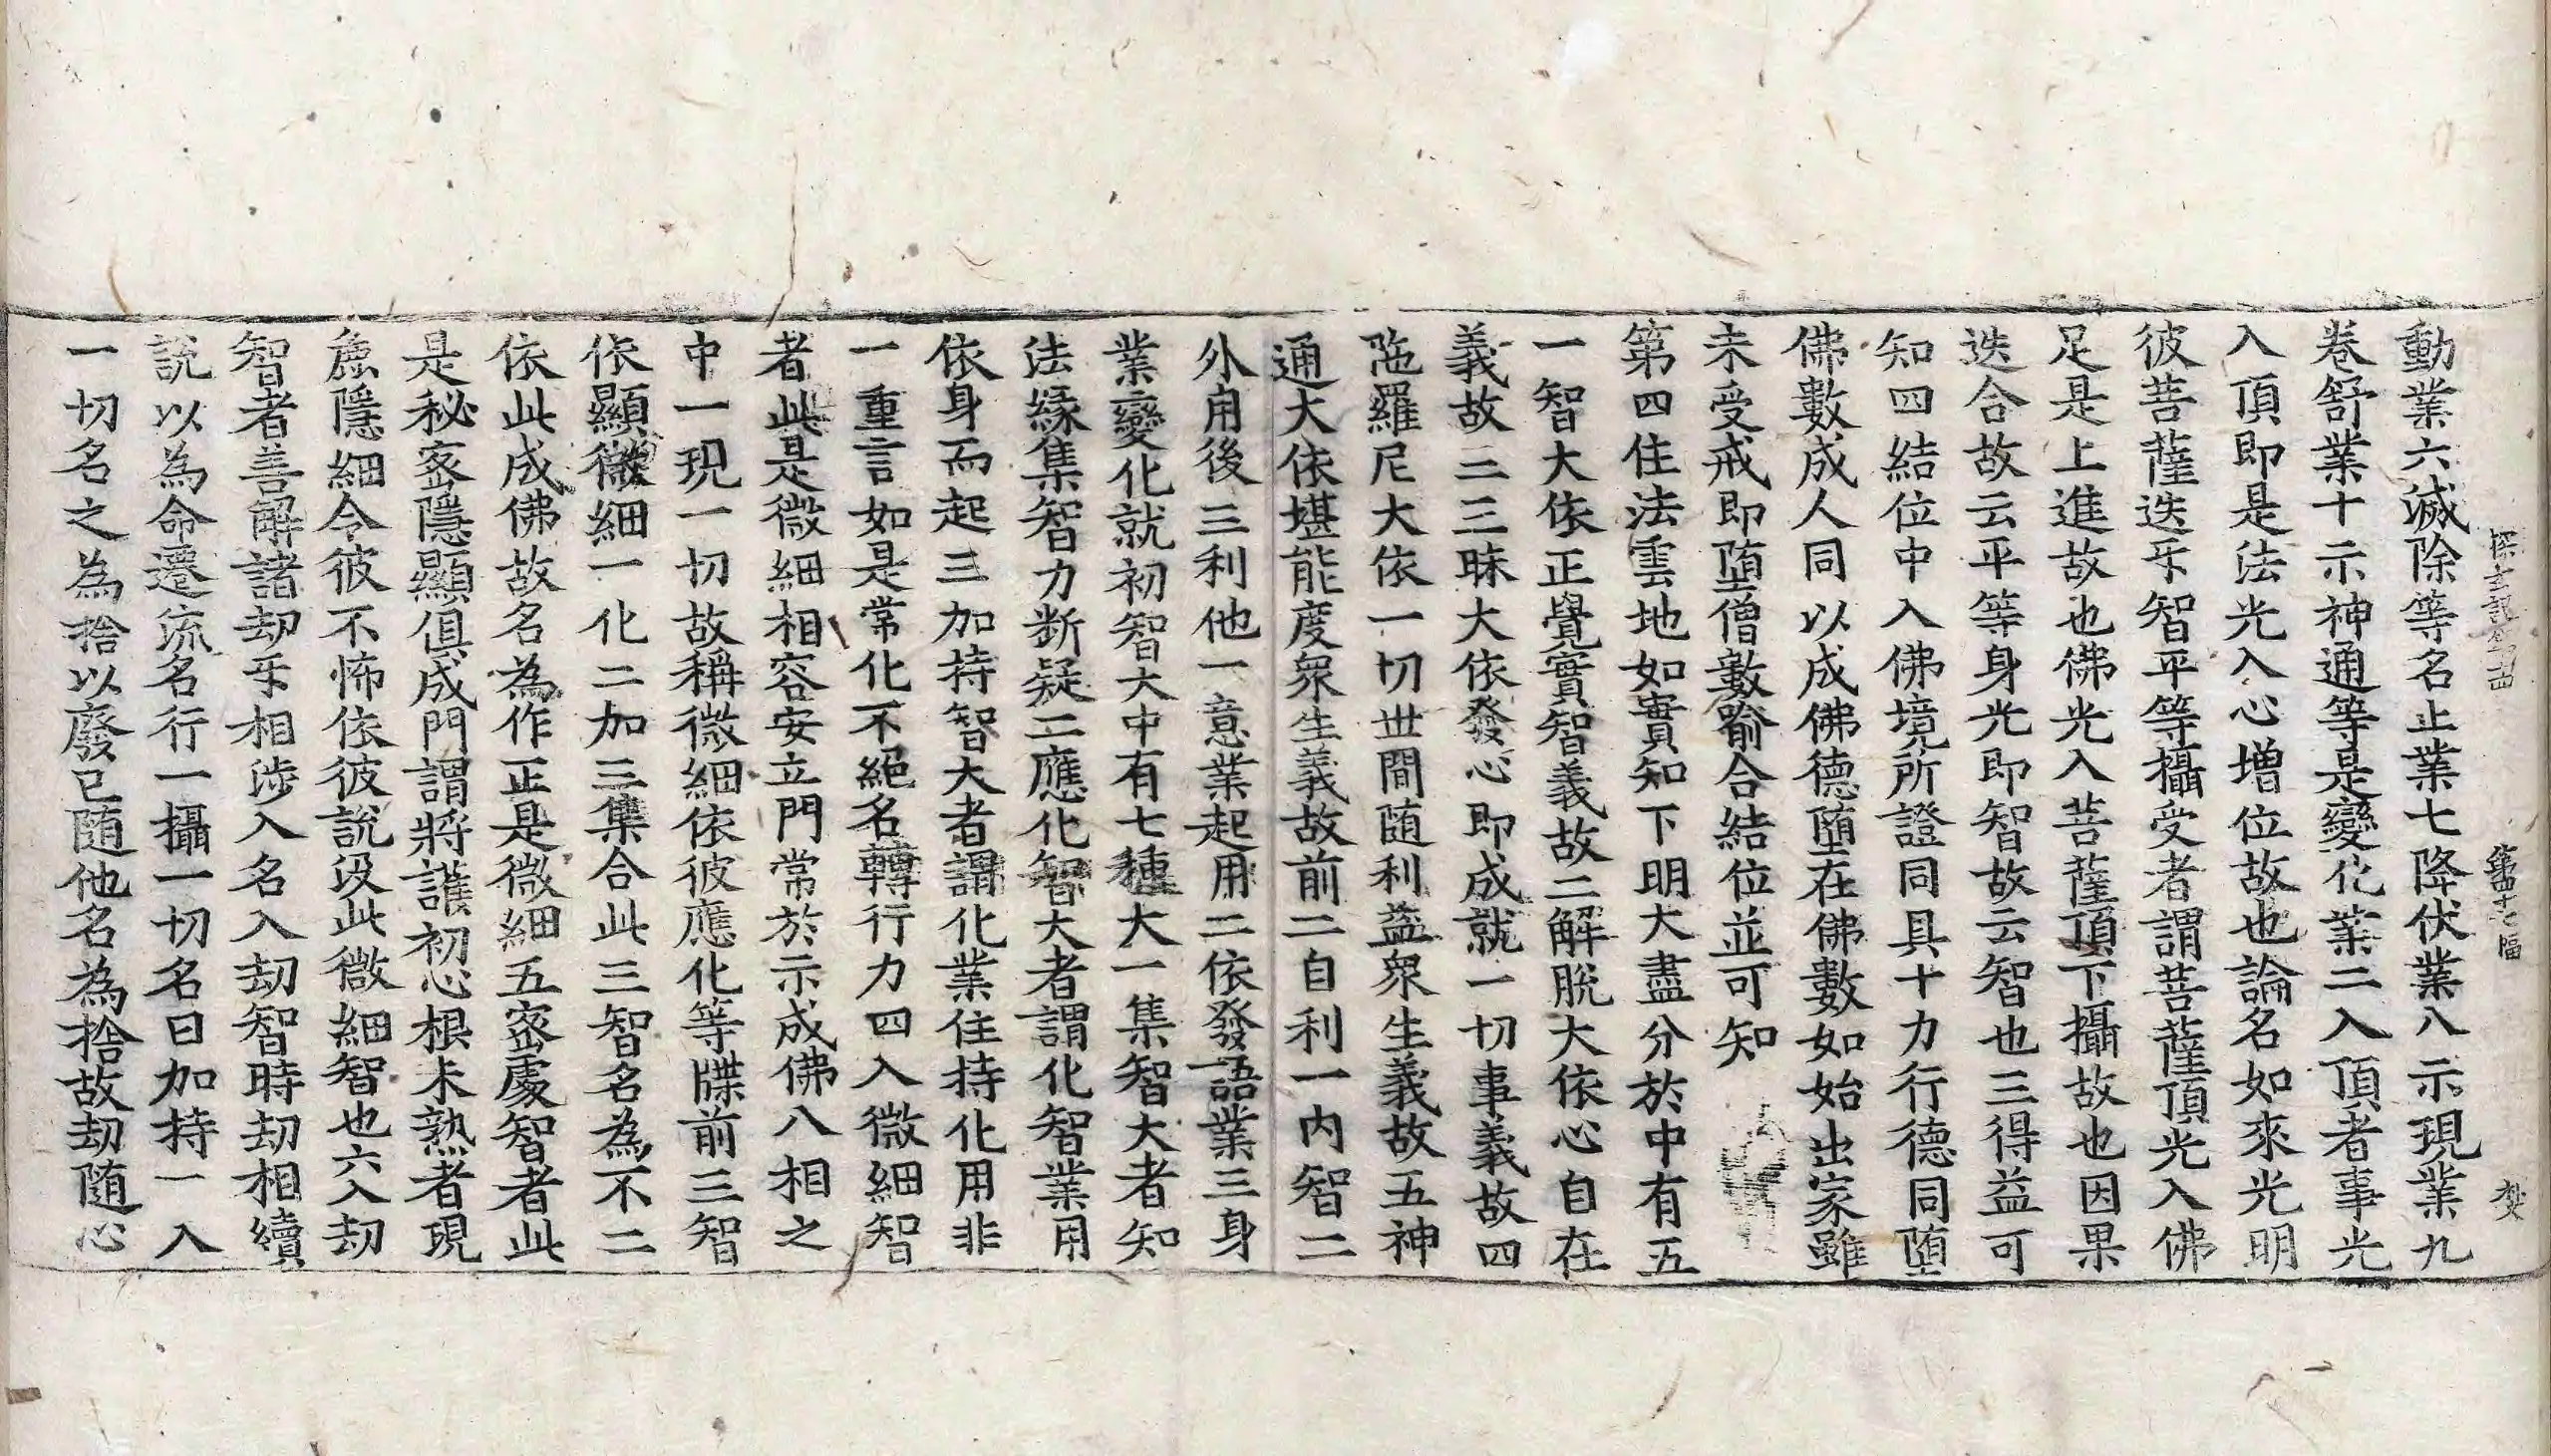 探玄記第十四 第四十七幅 杪
動業六滅除等名止業七降伏業八示現業九
卷舒業十示神通等是變化業二入頂者事光
入頂即是法光入心增位故也論名如來光明
彼菩薩迭乐智平等攝受者謂菩薩頂光入佛
足是上進故也佛光入菩薩頂下攝故也因果
迭合故云平等身光即智故云智也三得益可
知四結位中入佛境所證同具十力行德同墮
佛數成人同以成佛德墮在佛數如始出家雖
未受戒即墮僧數喻合結位並可知
第四住法雲地如實知下明大盡分於中有五
一智大依正覺實智義故二解脫大依心自在
義故二三昧大依發心即成就一切事義故四
陁羅尼大依一切世間随利益衆生義故五神
通大依堪能度衆生義故前二自利一內智二
外用後三利他一意業起用二依發語業三身
業變化就初智大中有七種大一集智大者知
法縁集智力断疑二應化智大者謂化智業用
依身而起三加持智大者謂化業住持化用非
一重言如是常化不絕名轉行力四入微細智
者此是微細相容安立門常於示成佛八相之
中一現一切故稱微細依彼應化等牒前三智
依顯微細一化二加三集合此三智名為不二
依此成佛故名為作正是微細五密處智者此
是秘密隱顯俱成門謂將護初心根未熟者現
麁隱細令彼不怖依彼說没此微細智也六入劫
智者善解諸劫乐相涉入名入劫智時劫相續
說以為命遷流名行一攝一切名曰加持一入
一切名之為捨以廢已随他名為捨故劫随心